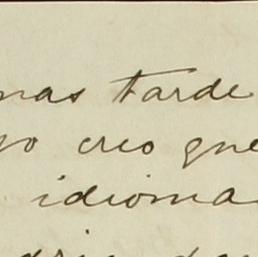 mas tarde
yo creo que
idioma